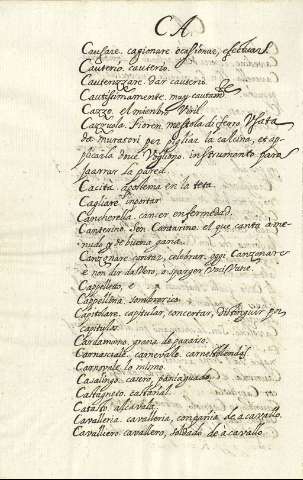 CA
Causare. cagionare ocasionar, efectuar.
Cauterio. cauterio.
Cauterizzare. dar cauterio.
Cautissimamente. muy cautam.te
Cazzo. el miembro Viril.
Cazzuola. Fioren. mestola di ferro Usata
da muratori per pigliar la calcina, et ap
plicarla dove Vogliono. instrumento para
jaarrar la pared.
Cacità. apostema en la teta.
Cagliare. importar
Cancherella. cancer enfermedad.
Canterino. Sen. Cantarino. el que canta à me
nudo, y de buena gana.
Canzonare. cantar, celebrar. oggi Canzonare
è non dir da Vero, ò sparger Voci Vane.
Cappelletto, e
Cappellina. sombrerico
Capitolare. capitular, concertar, distinguir por
capitulos.
Cardamomo. grana de paraiso.
Carnasciale. carnevale. carnestolendas.
Carnovale. lo mismo.
Casalingo. casero, paniaguado.
Castagneto. castañal.
Catasto. alcavala.
Cavalleria. cavalleria, compania de à cavallo.
Cavalliero. cavallero, soldado de à cavallo.